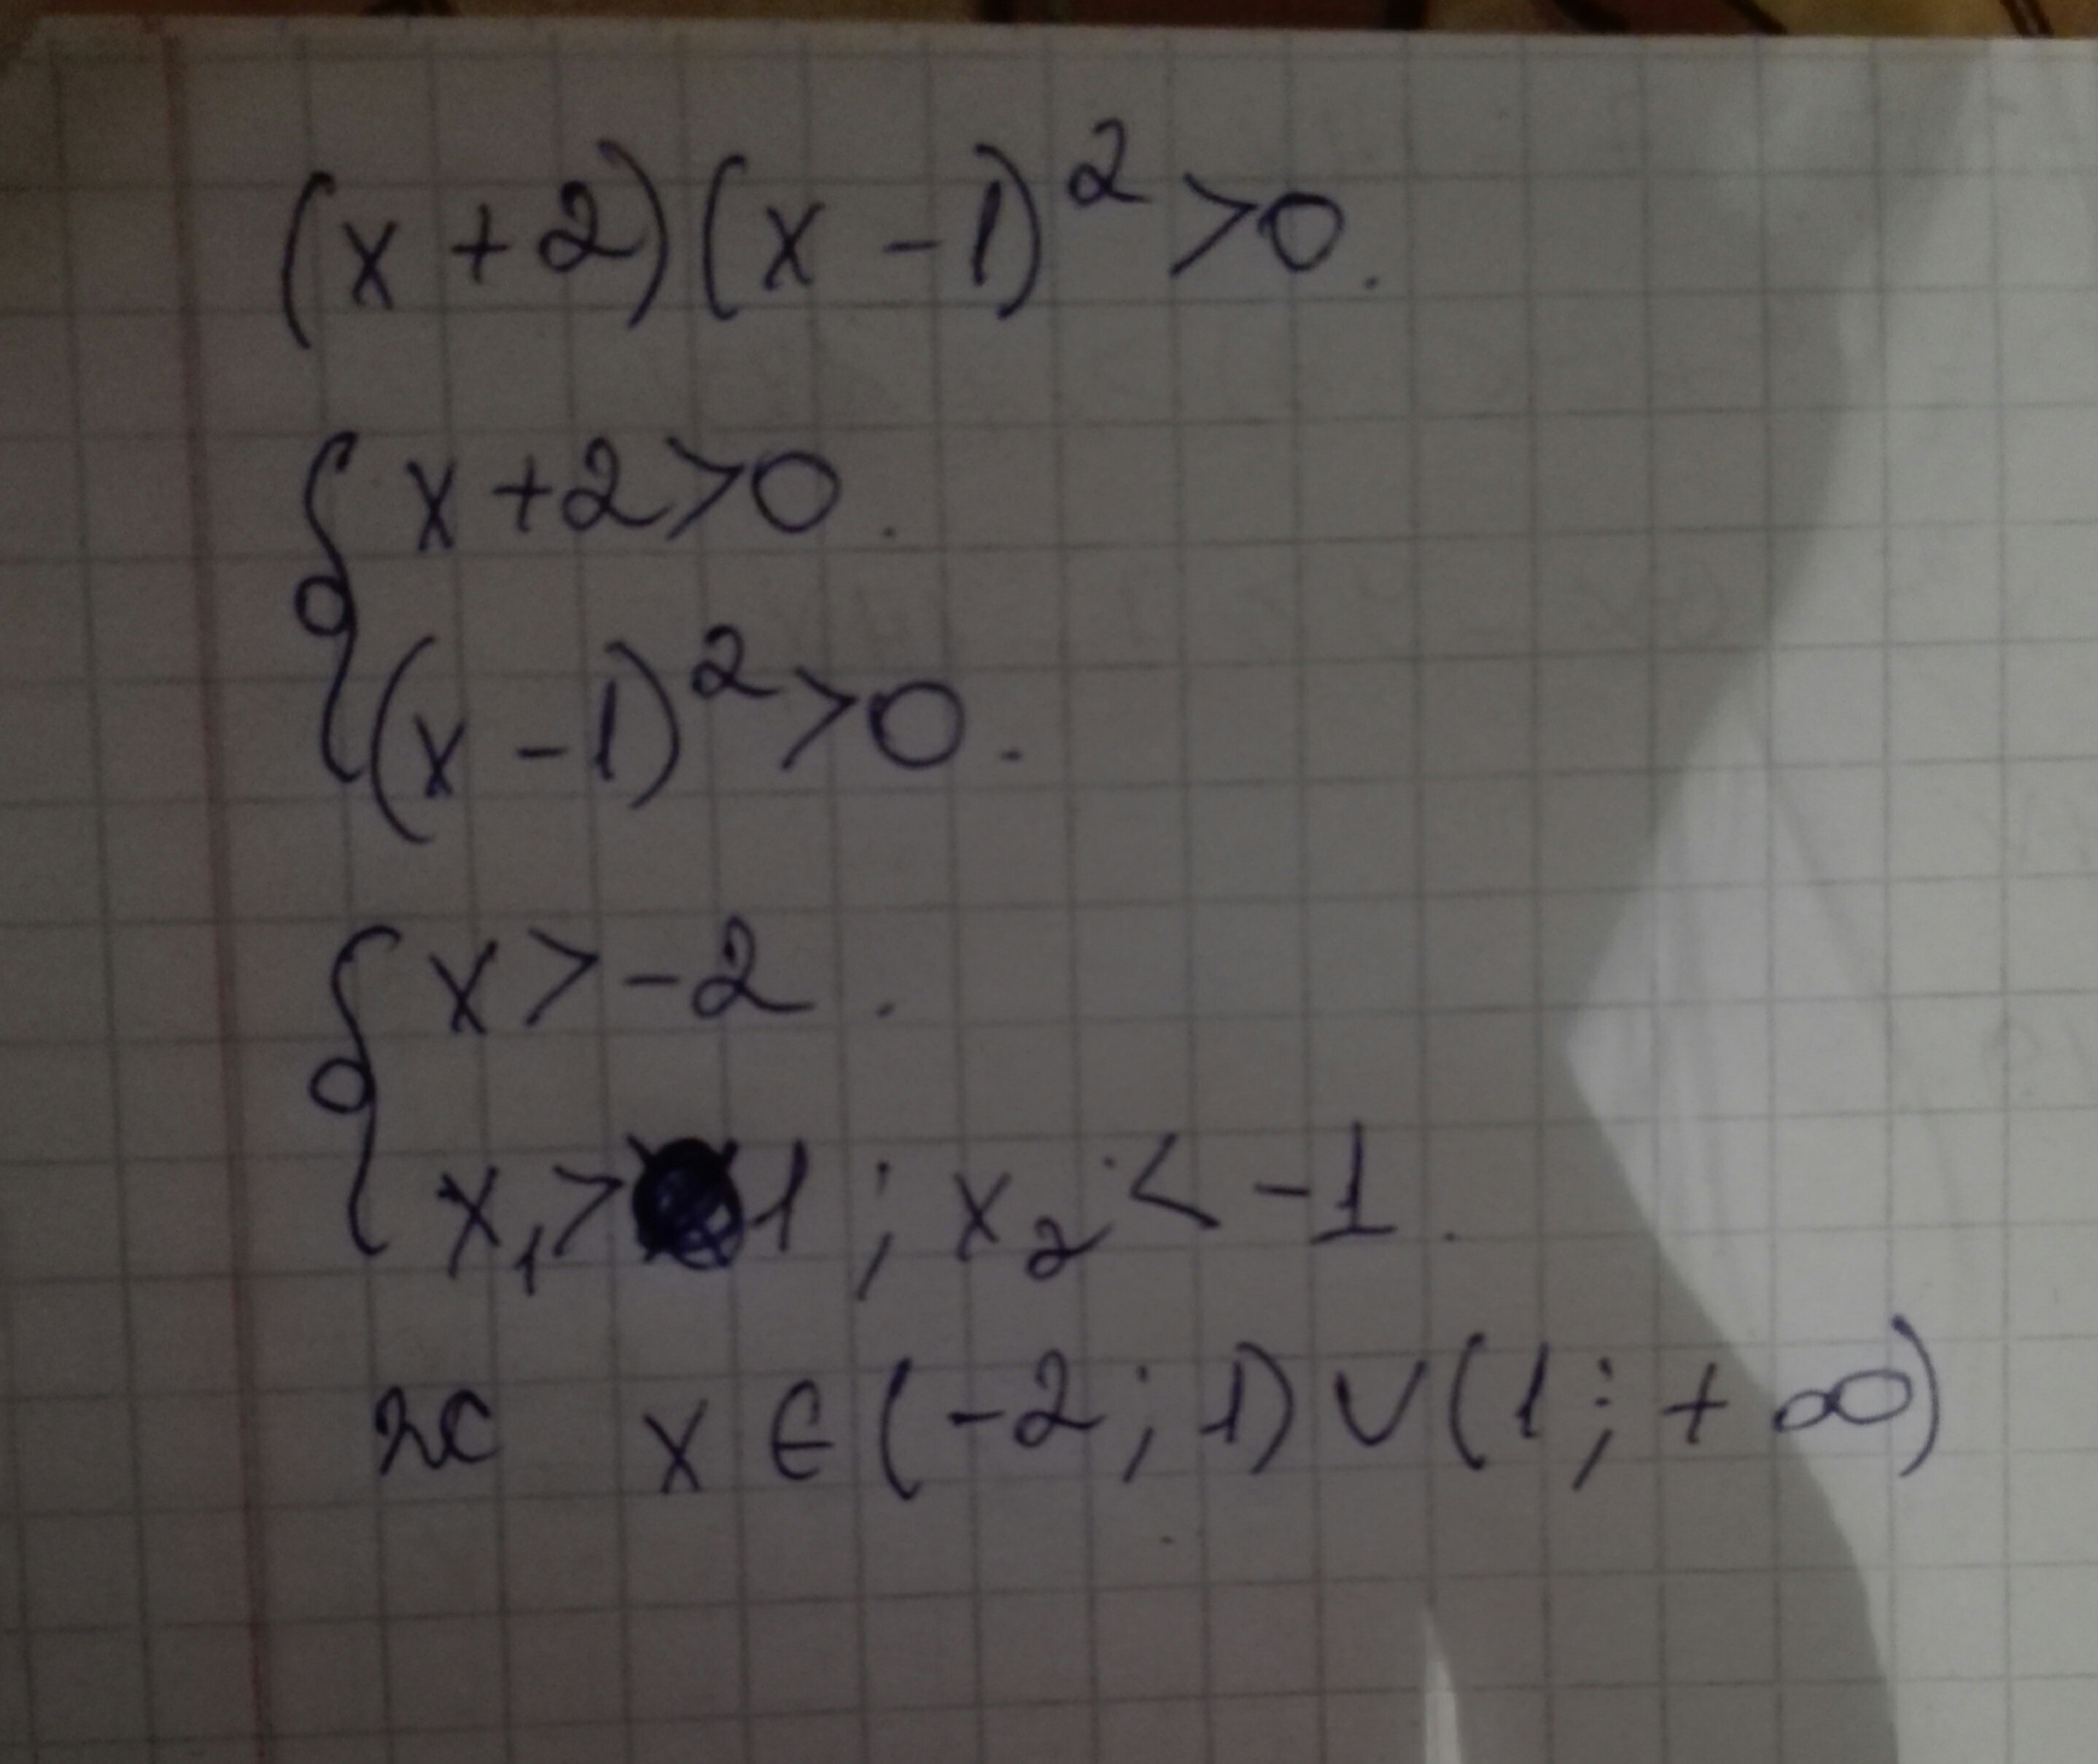 (x+2)(x-1)²>0.
{ x+2>0.
(x-1)²>0.
{ x>-2.
x₁> 1; x₂<-1.
x∈(-2; 1)∪(1; +∞)